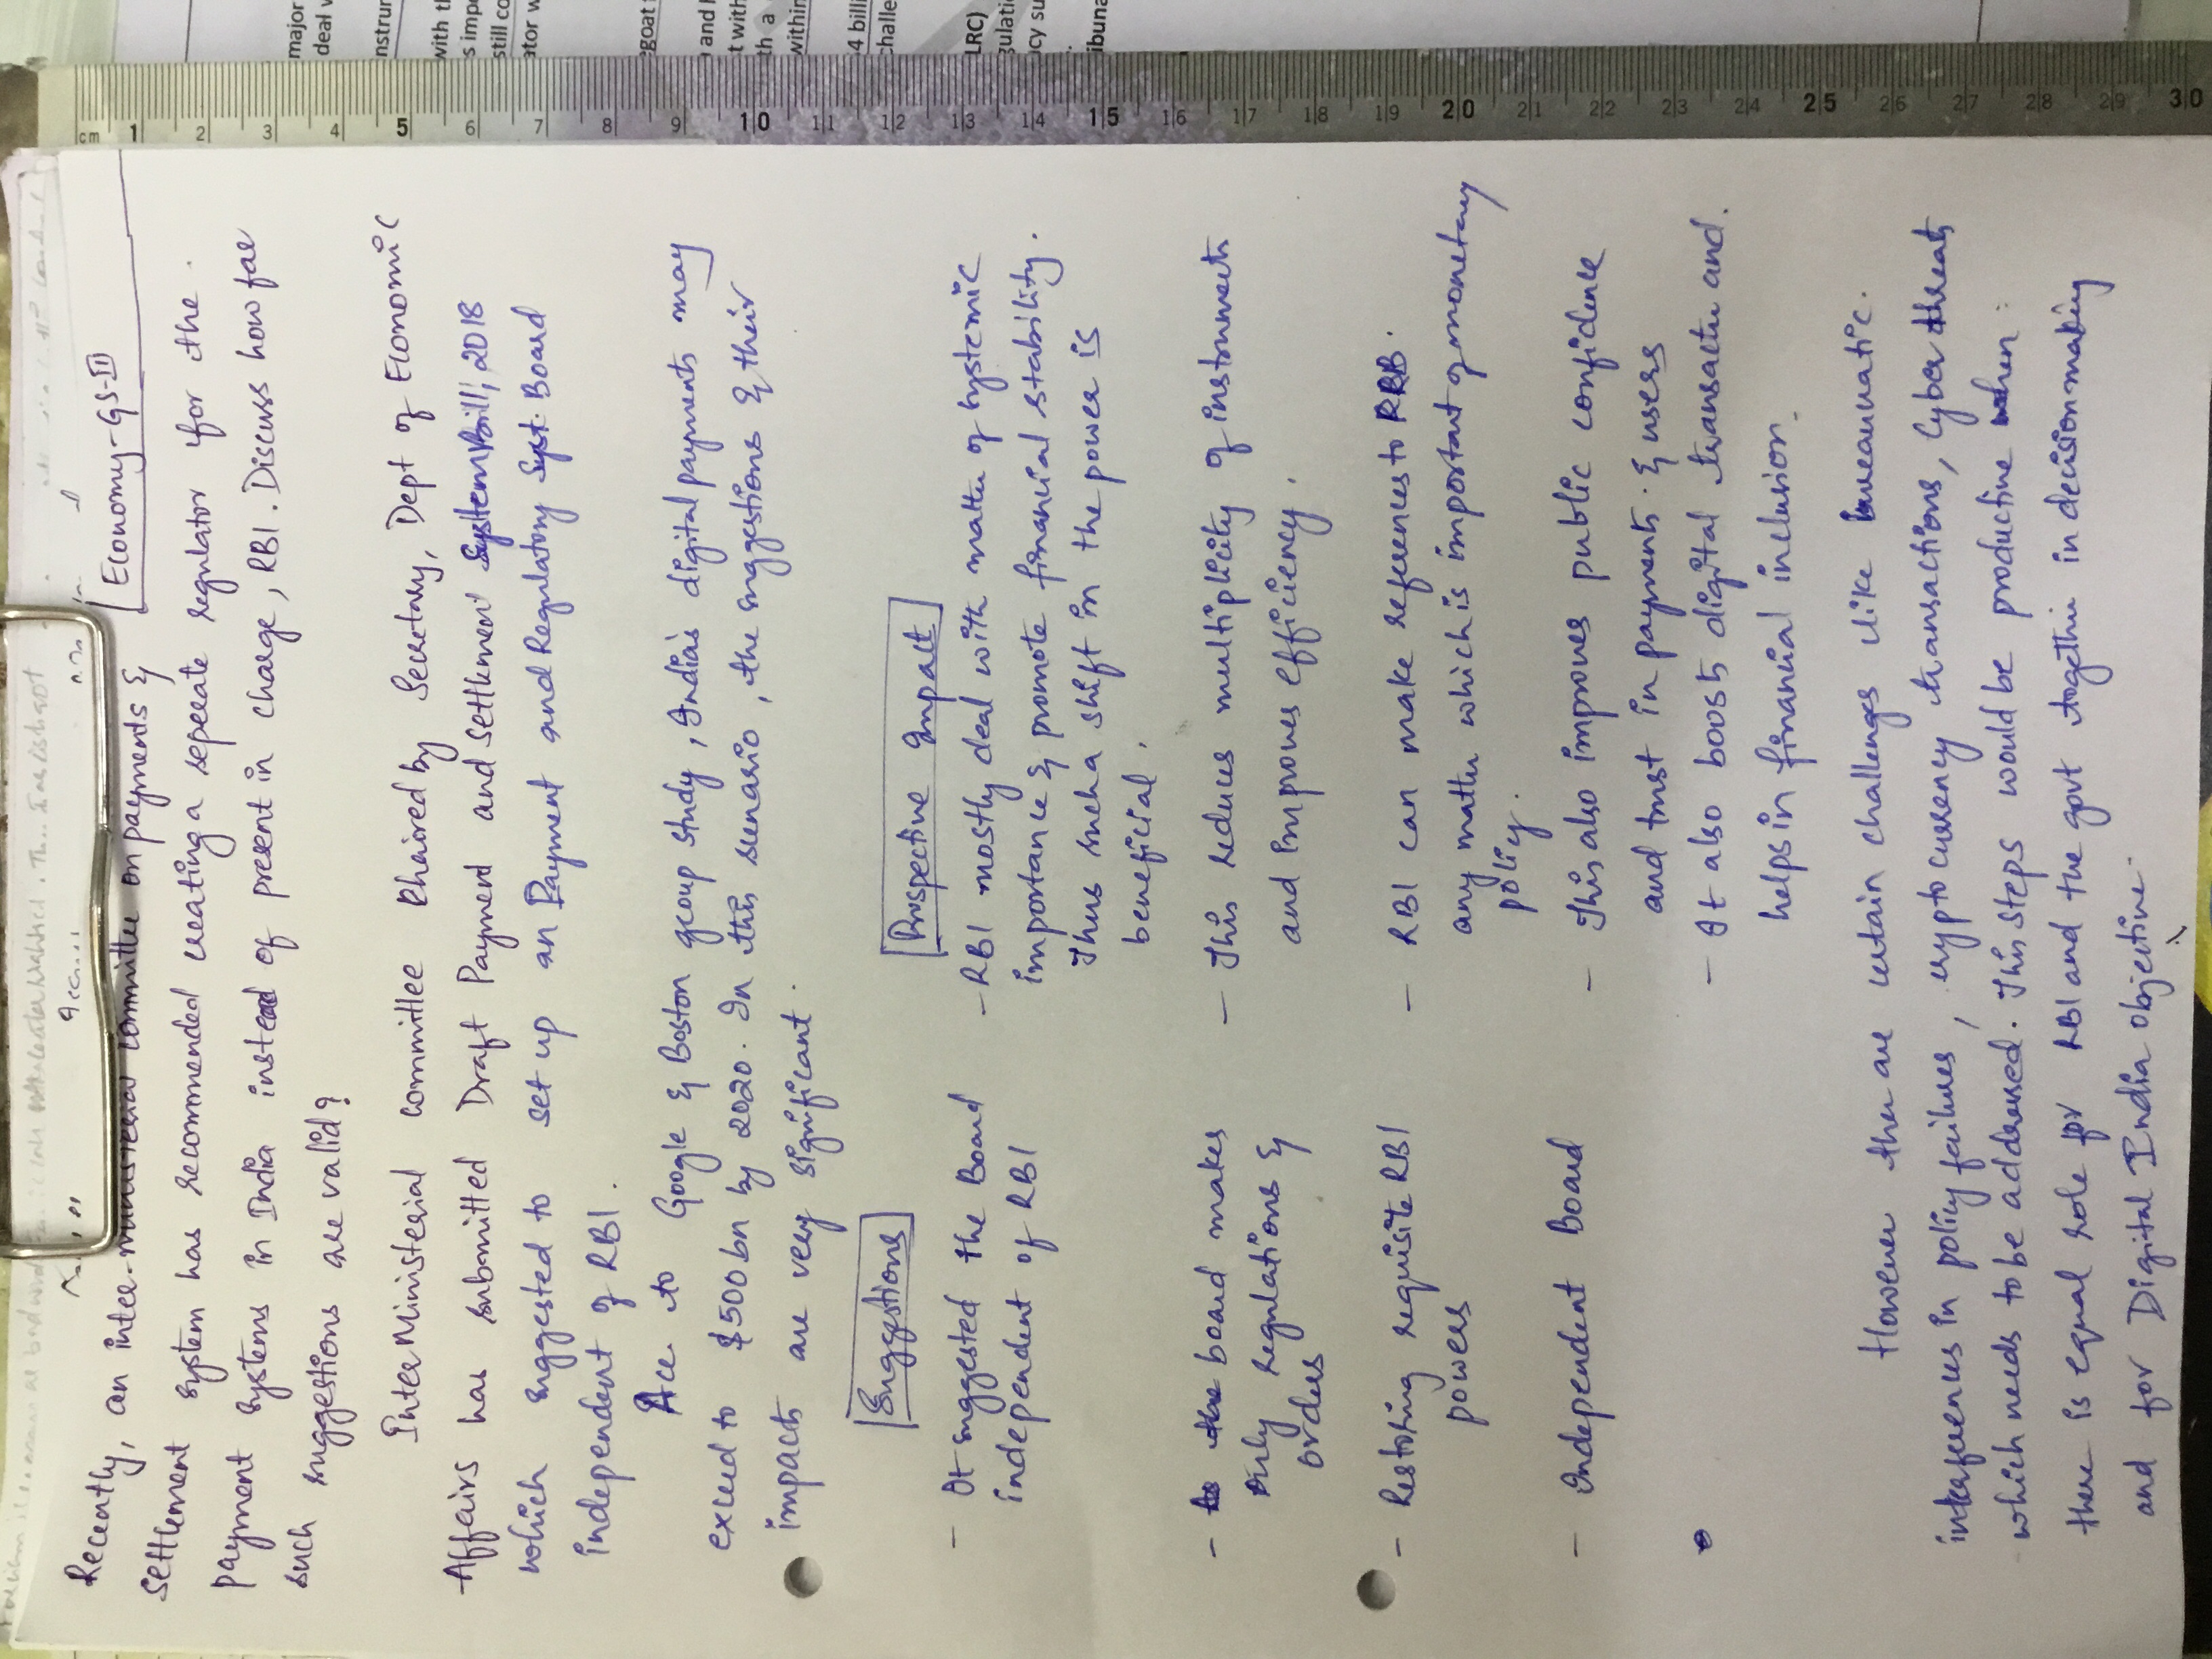 major
deal w
nstrur
with th
s impe
still co
ator w
egoat
and
t with
th a
within
4 billi
challe
LRC)
gulati
cy su
ibuna
cm 1 2 3 4 5 6 7 8 9 10 11 12 13 14 15 16 17 18 19 20 21 22 23 24 25 26 27 28 29 30
Economy-GS-III
Recently, an inter-ministerial committee on payments &
settlement system has recommended creating a seperate regulator for the
payment systems in India instead of present in charge, RBI. Discuss how far
such suggestions are valid?
InterMinisterial committee chaired by Secretary, Dept of Economic
Affairs has submitted Draft Payment and Settlement System Bill, 2018
which suggested to set up an Payment and Regulatory Syst. Board
independent of RBI.
Acc to Google & Boston group study, India's digital payments may
exceed to $500bn by 2020. In this senario, the suggestions & their
impacts are very significant.
Suggestions
Prospective Impact
- It suggested the Board
independent of RBI
- RBI mostly deal with matter of systemic
importance & promote financial stability.
Thus such a shift in the power is
beneficial.
- the board makes
only regulations &
orders
- This reduces multiplicity of instruments
and improves efficiency.
- Restoring requisite RBI
powers
- RBI can make references to PRB.
any matter which is important of monetary
policy.
- Independent Board
- This also improves public confidence
and trust in payments & users
- It also boosts digital transactn and
helps in financial inclusion.
However ther are certain challenges like beureaumatic
interferences in policy failures, crypto currency transactions, Cyber threats
which needs to be addressed. This steps would be productive when
there is equal role for RBI and the govt together in decision making
and for Digital India objective.